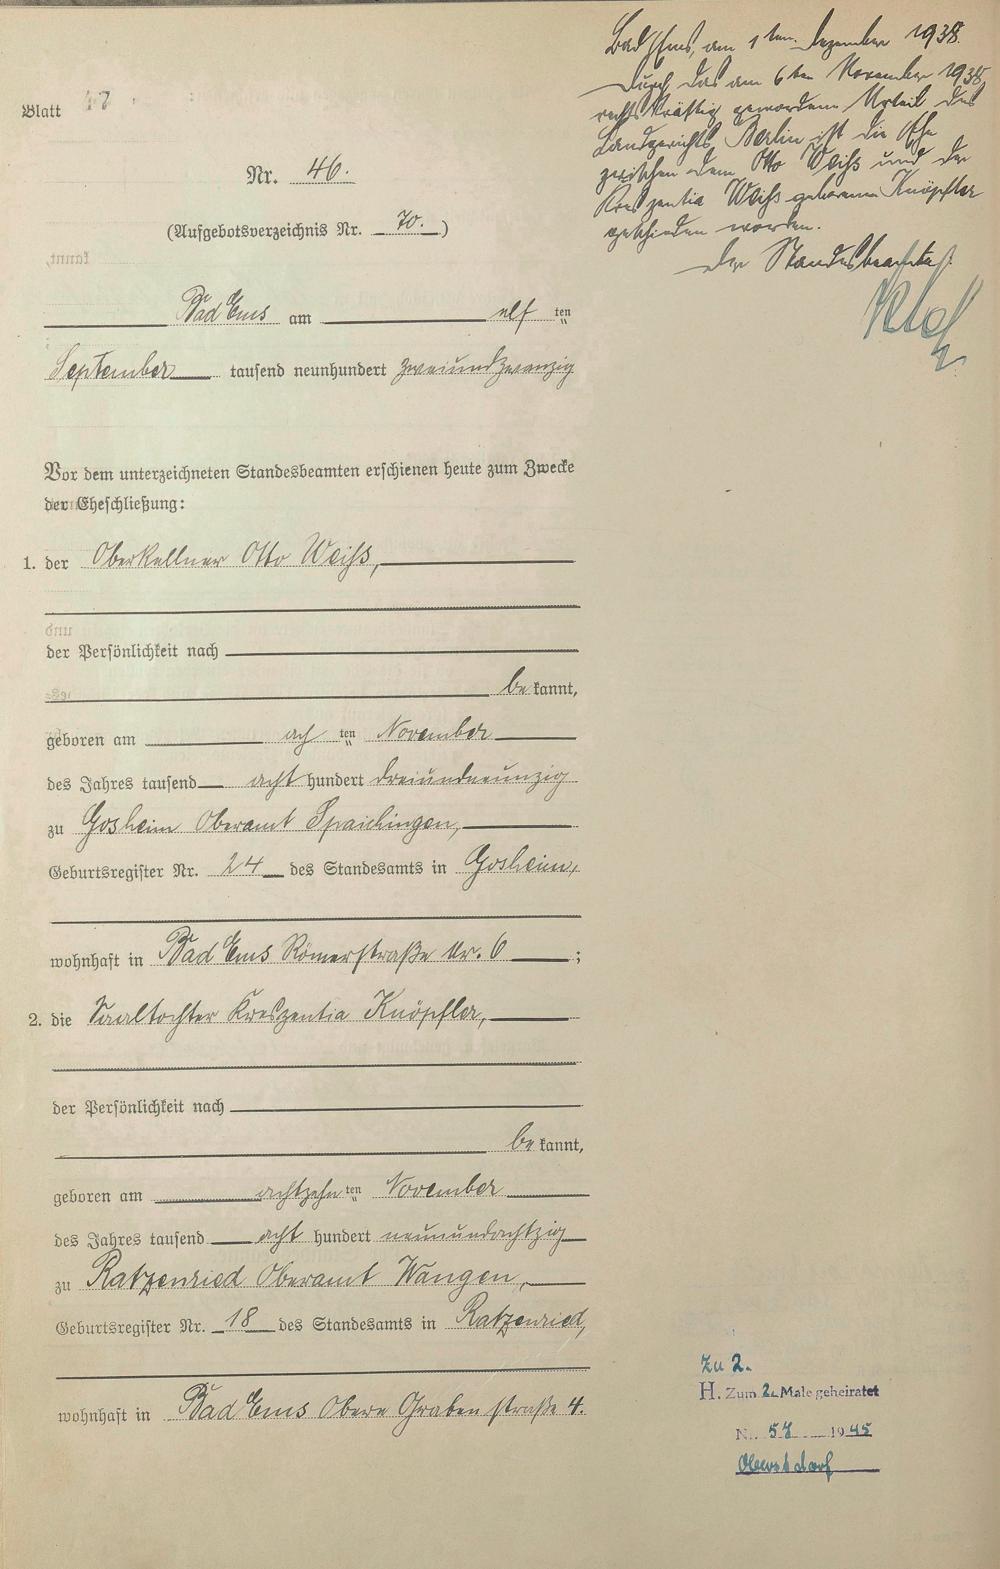 Blatt 47
Nr. 46.
(Aufgebotsverzeichnis Nr. 70.)
Bad Ems am elf ten
September tausend neunhundert zweiundzwanzig
Vor dem unterzeichneten Standesbeamten erschienen heute zum Zwecke
der Eheschließung:
1. der Oberkellner Otto Weiß,
der Persönlichkeit nach
be kannt,
geboren am ach ten November
des Jahres tausend acht hundert dreiundneunzig
zu Gosheim Oberamt Spaichingen,
Geburtsregister Nr. 24 des Standesamts in Gosheim,
wohnhaft in Bad Ems Römerstraße Nr. 6 ;
2. die Saaltochter Kreszentia Knöpfler,
der Persönlichkeit nach
be kannt,
geboren am achtzehn ten November
des Jahres tausend acht hundert neunundachtzig
zu Ratzenried Oberamt Wangen,
Geburtsregister Nr. 18 des Standesamts in Ratzenried,
wohnhaft in Bad Ems Obere Graben straße 4.
Bad Ems, am 1ten Dezember 1938.
Durch das am 6ten November 1938
rechtskräftig gewordene Urteil des
Landgerichts Berlin ist die Ehe
zwischen dem Otto Weiß und der
Kreszentia Weiß geborenen Knöpfler
geschieden worden.
Der Standesbeamte:
zu 2.
H. Zum 2. Male geheiratet
Nr. 57 1945
Oberstdorf